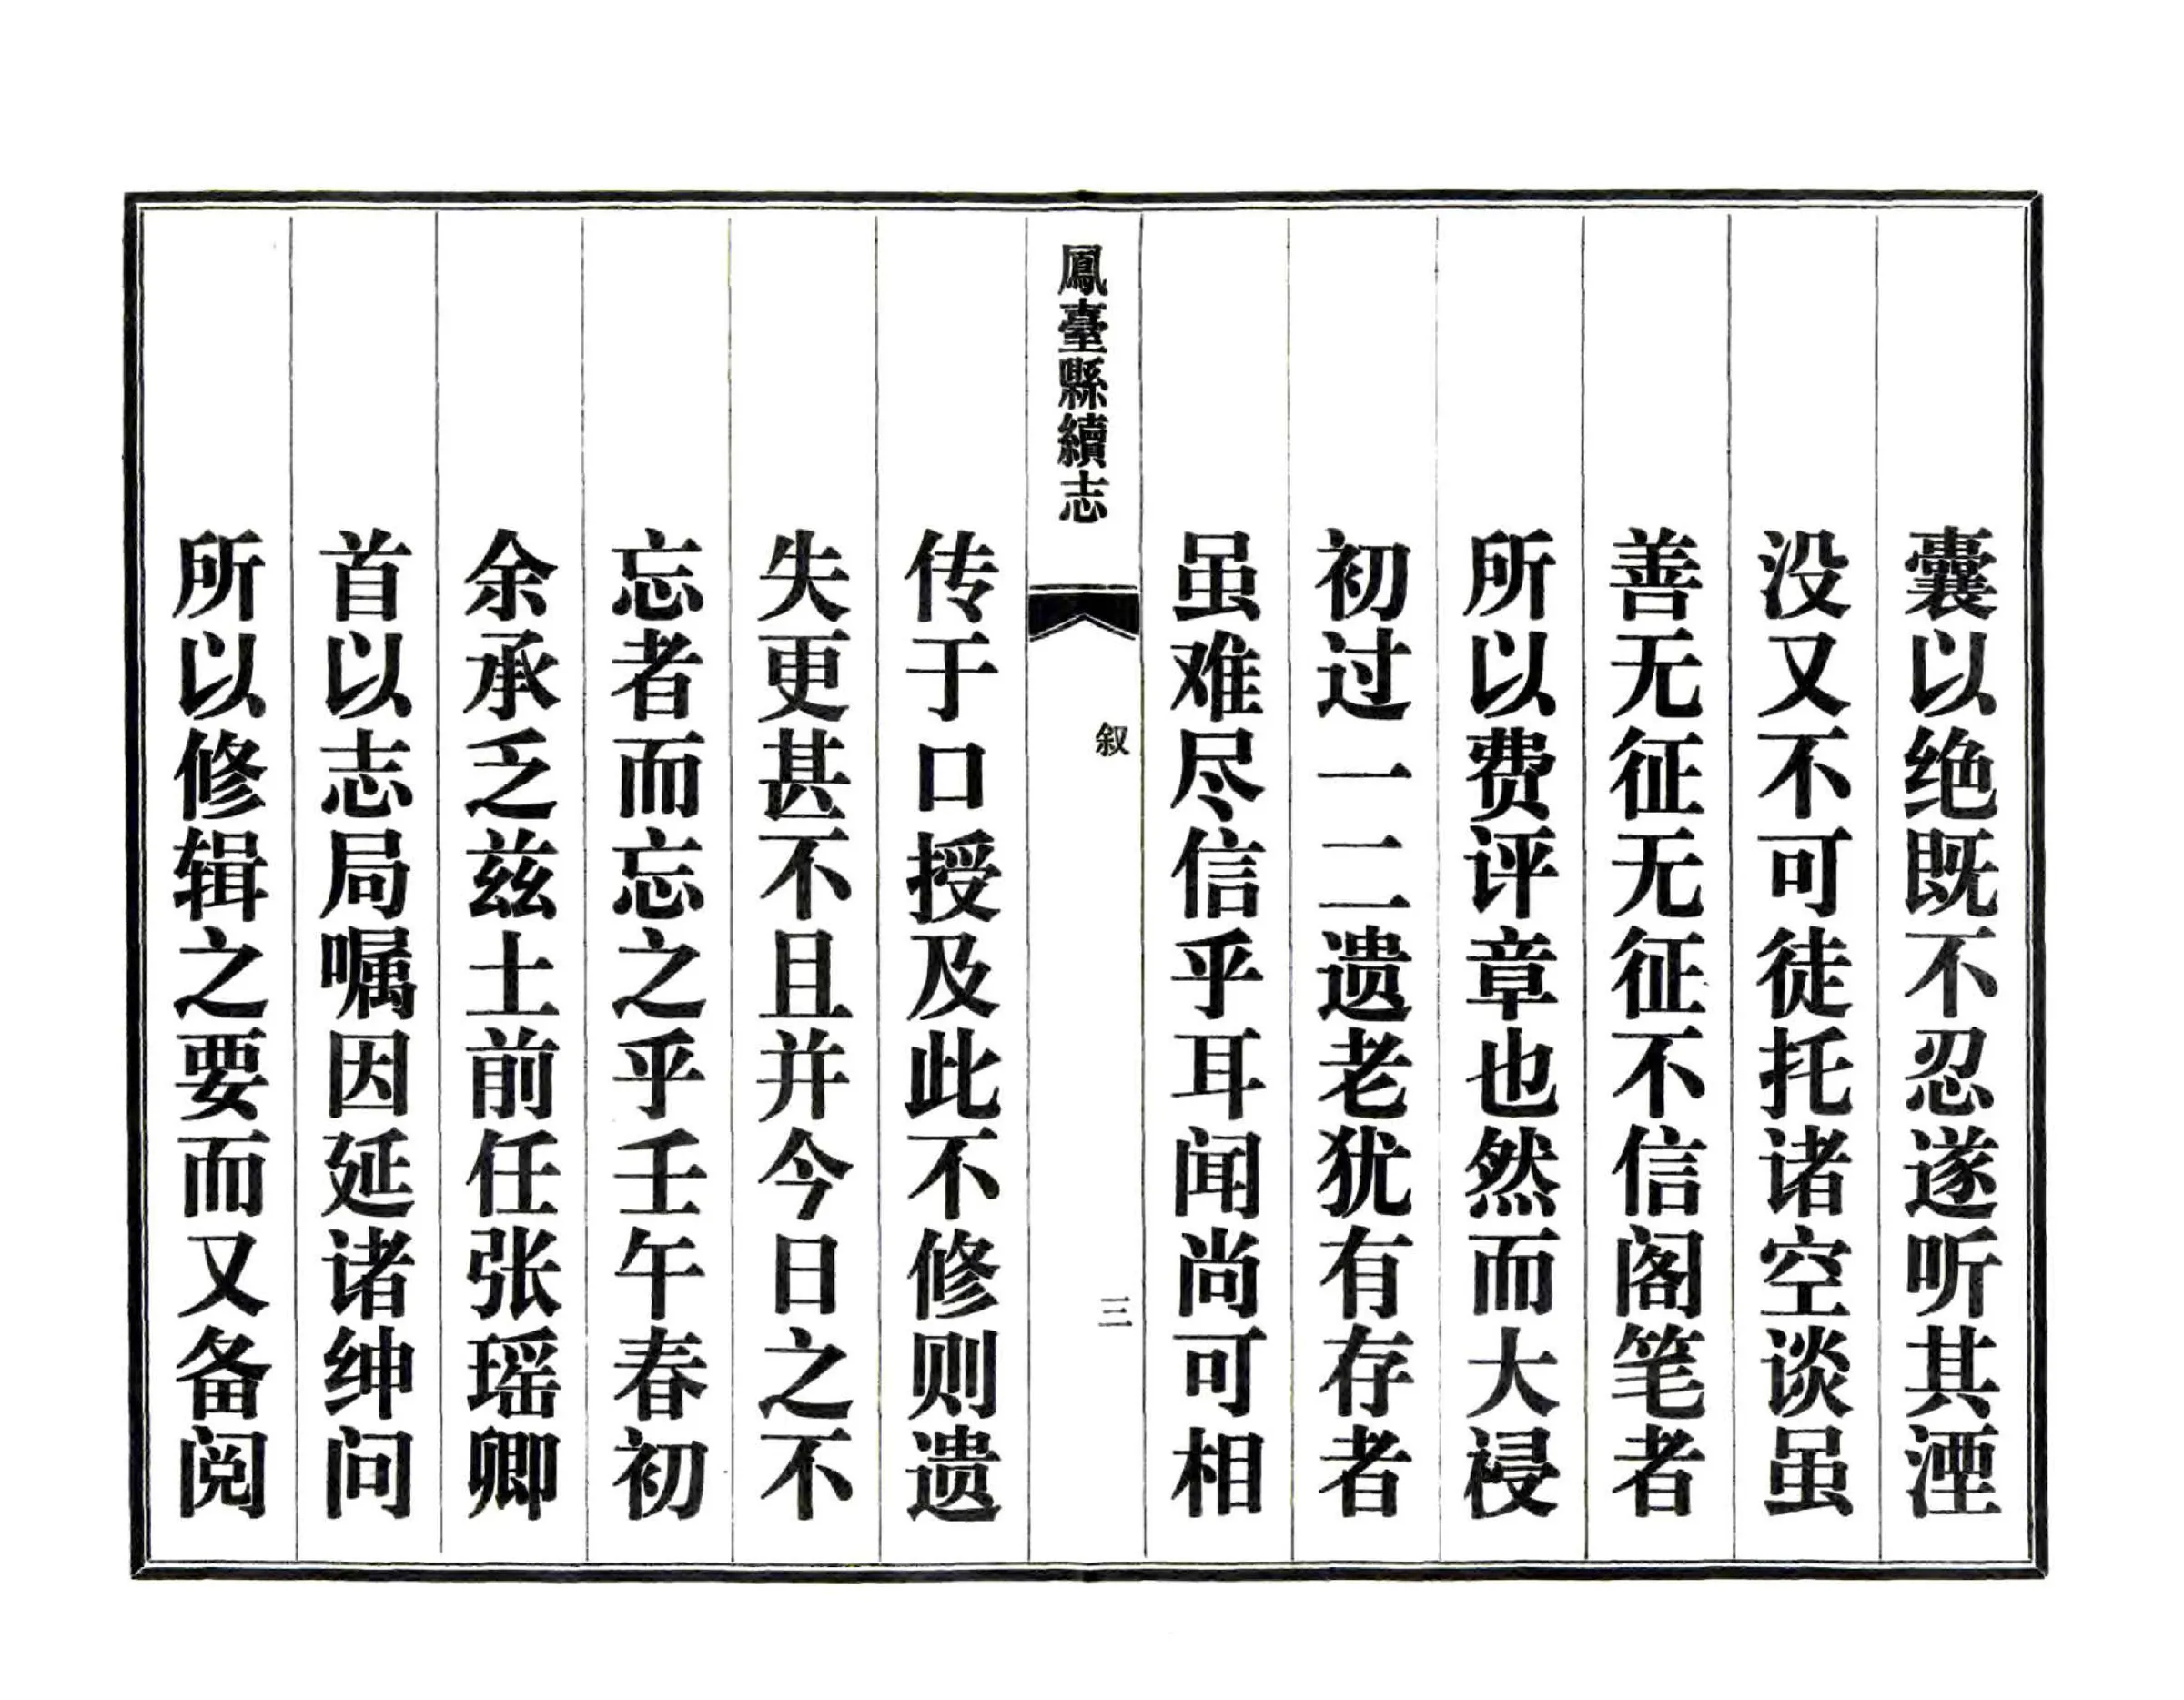 囊以绝既不忍遂听其湮
没又不可徒托诸空谈虽
善无征无征不信阁笔者
所以费评章也然而大祲
初过一二遗老犹有存者
虽难尽信乎耳闻尚可相
鳳臺縣續志
叙
三
传于口授及此不修则遗
失更甚不且并今日之不
忘者而忘之乎壬午春初
余承乏兹土前任张瑶卿
首以志局嘱因延诸绅问
所以修辑之要而又备阅